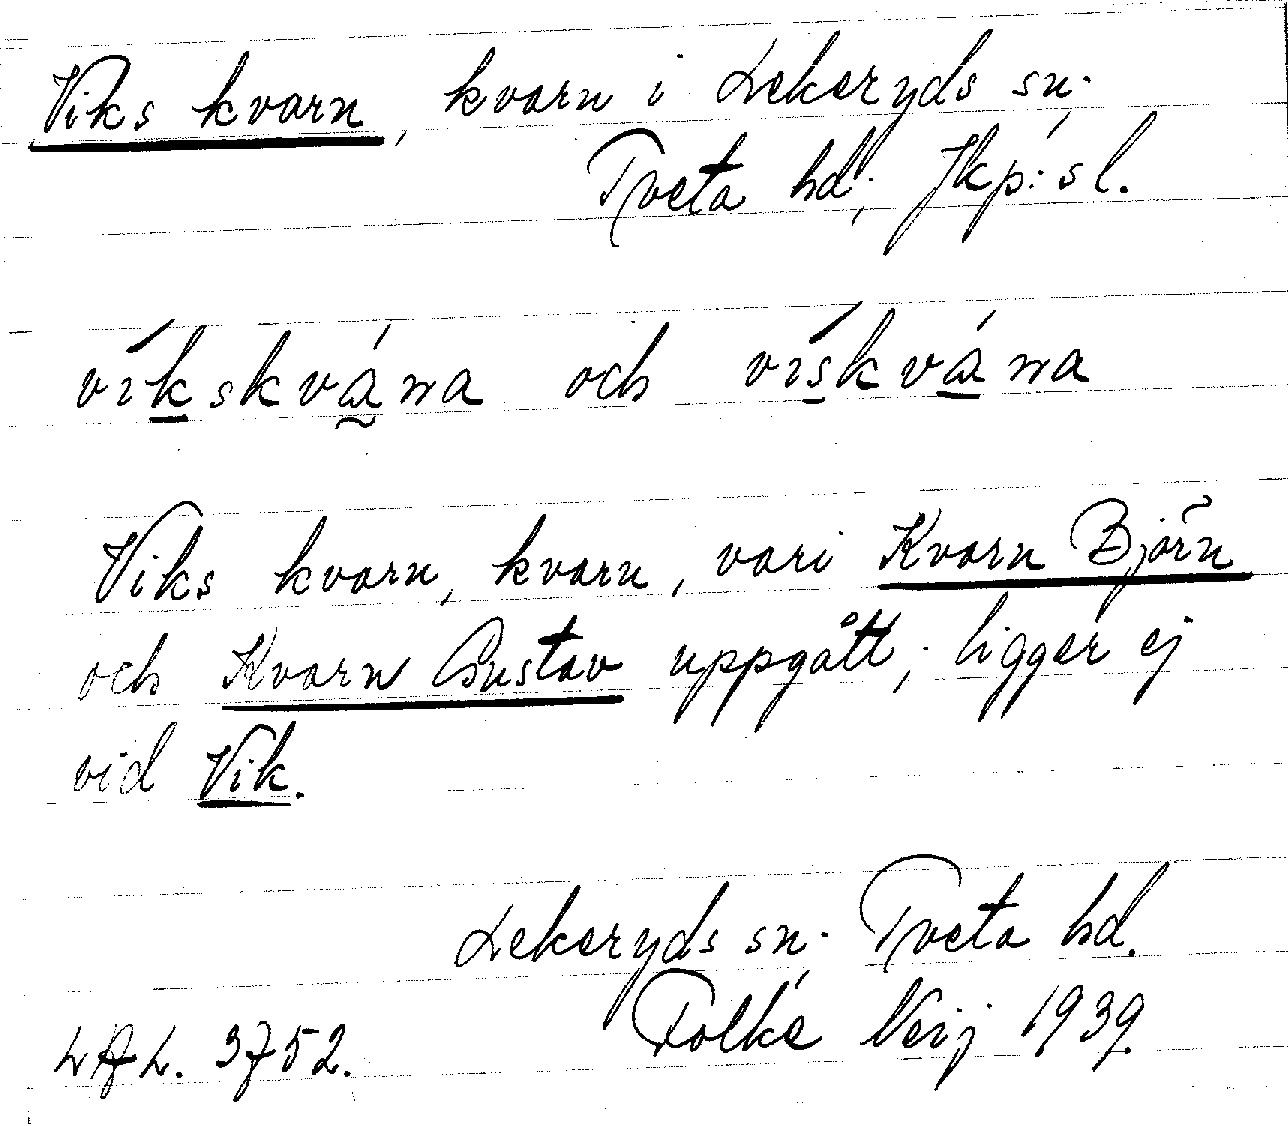 Viks kvarn, kvarn i Lekeryds sn.
Tveta hd, Jkp:s l.
víkskvána och vískvána
Viks kvarn, kvarn, vari Kvarn Björn
och Kvarn Gustav uppgått; ligger ej
vid Vik.
Lekeryds sn. Tveta hd.
Folke 1939.
LAL. 3752.